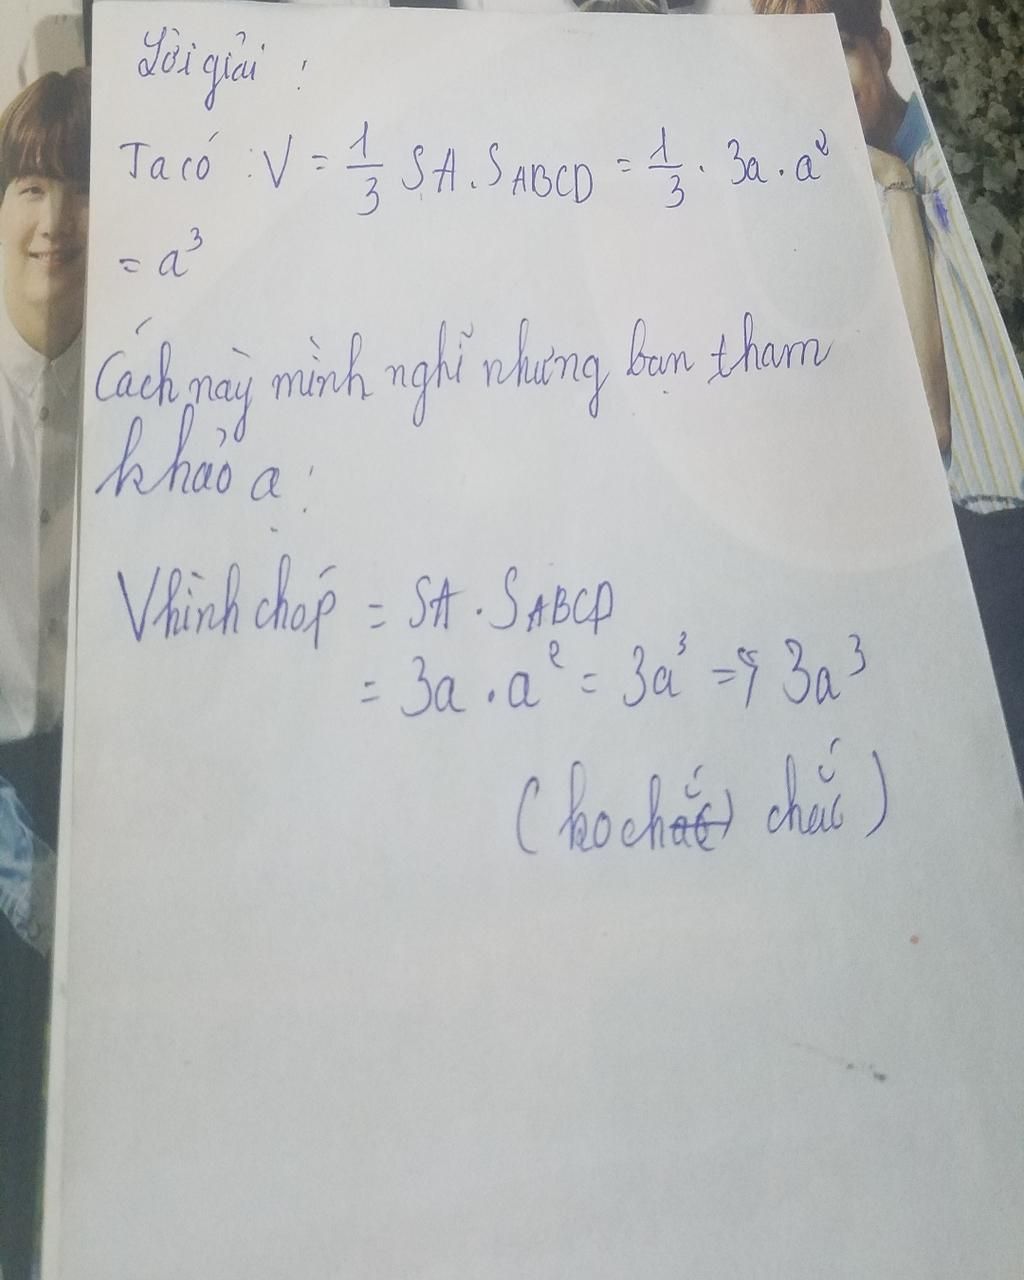 Lời giải :
Ta có : V = 1/3 SA . S ABCD = 1/3 . 3a . a²
= a³
Cách này mình nghĩ nhưng bạn tham
khảo ạ :
V hình chóp = SA . S ABCD
= 3a . a² = 3a³ => 3a³
(ko chắc) chắc)